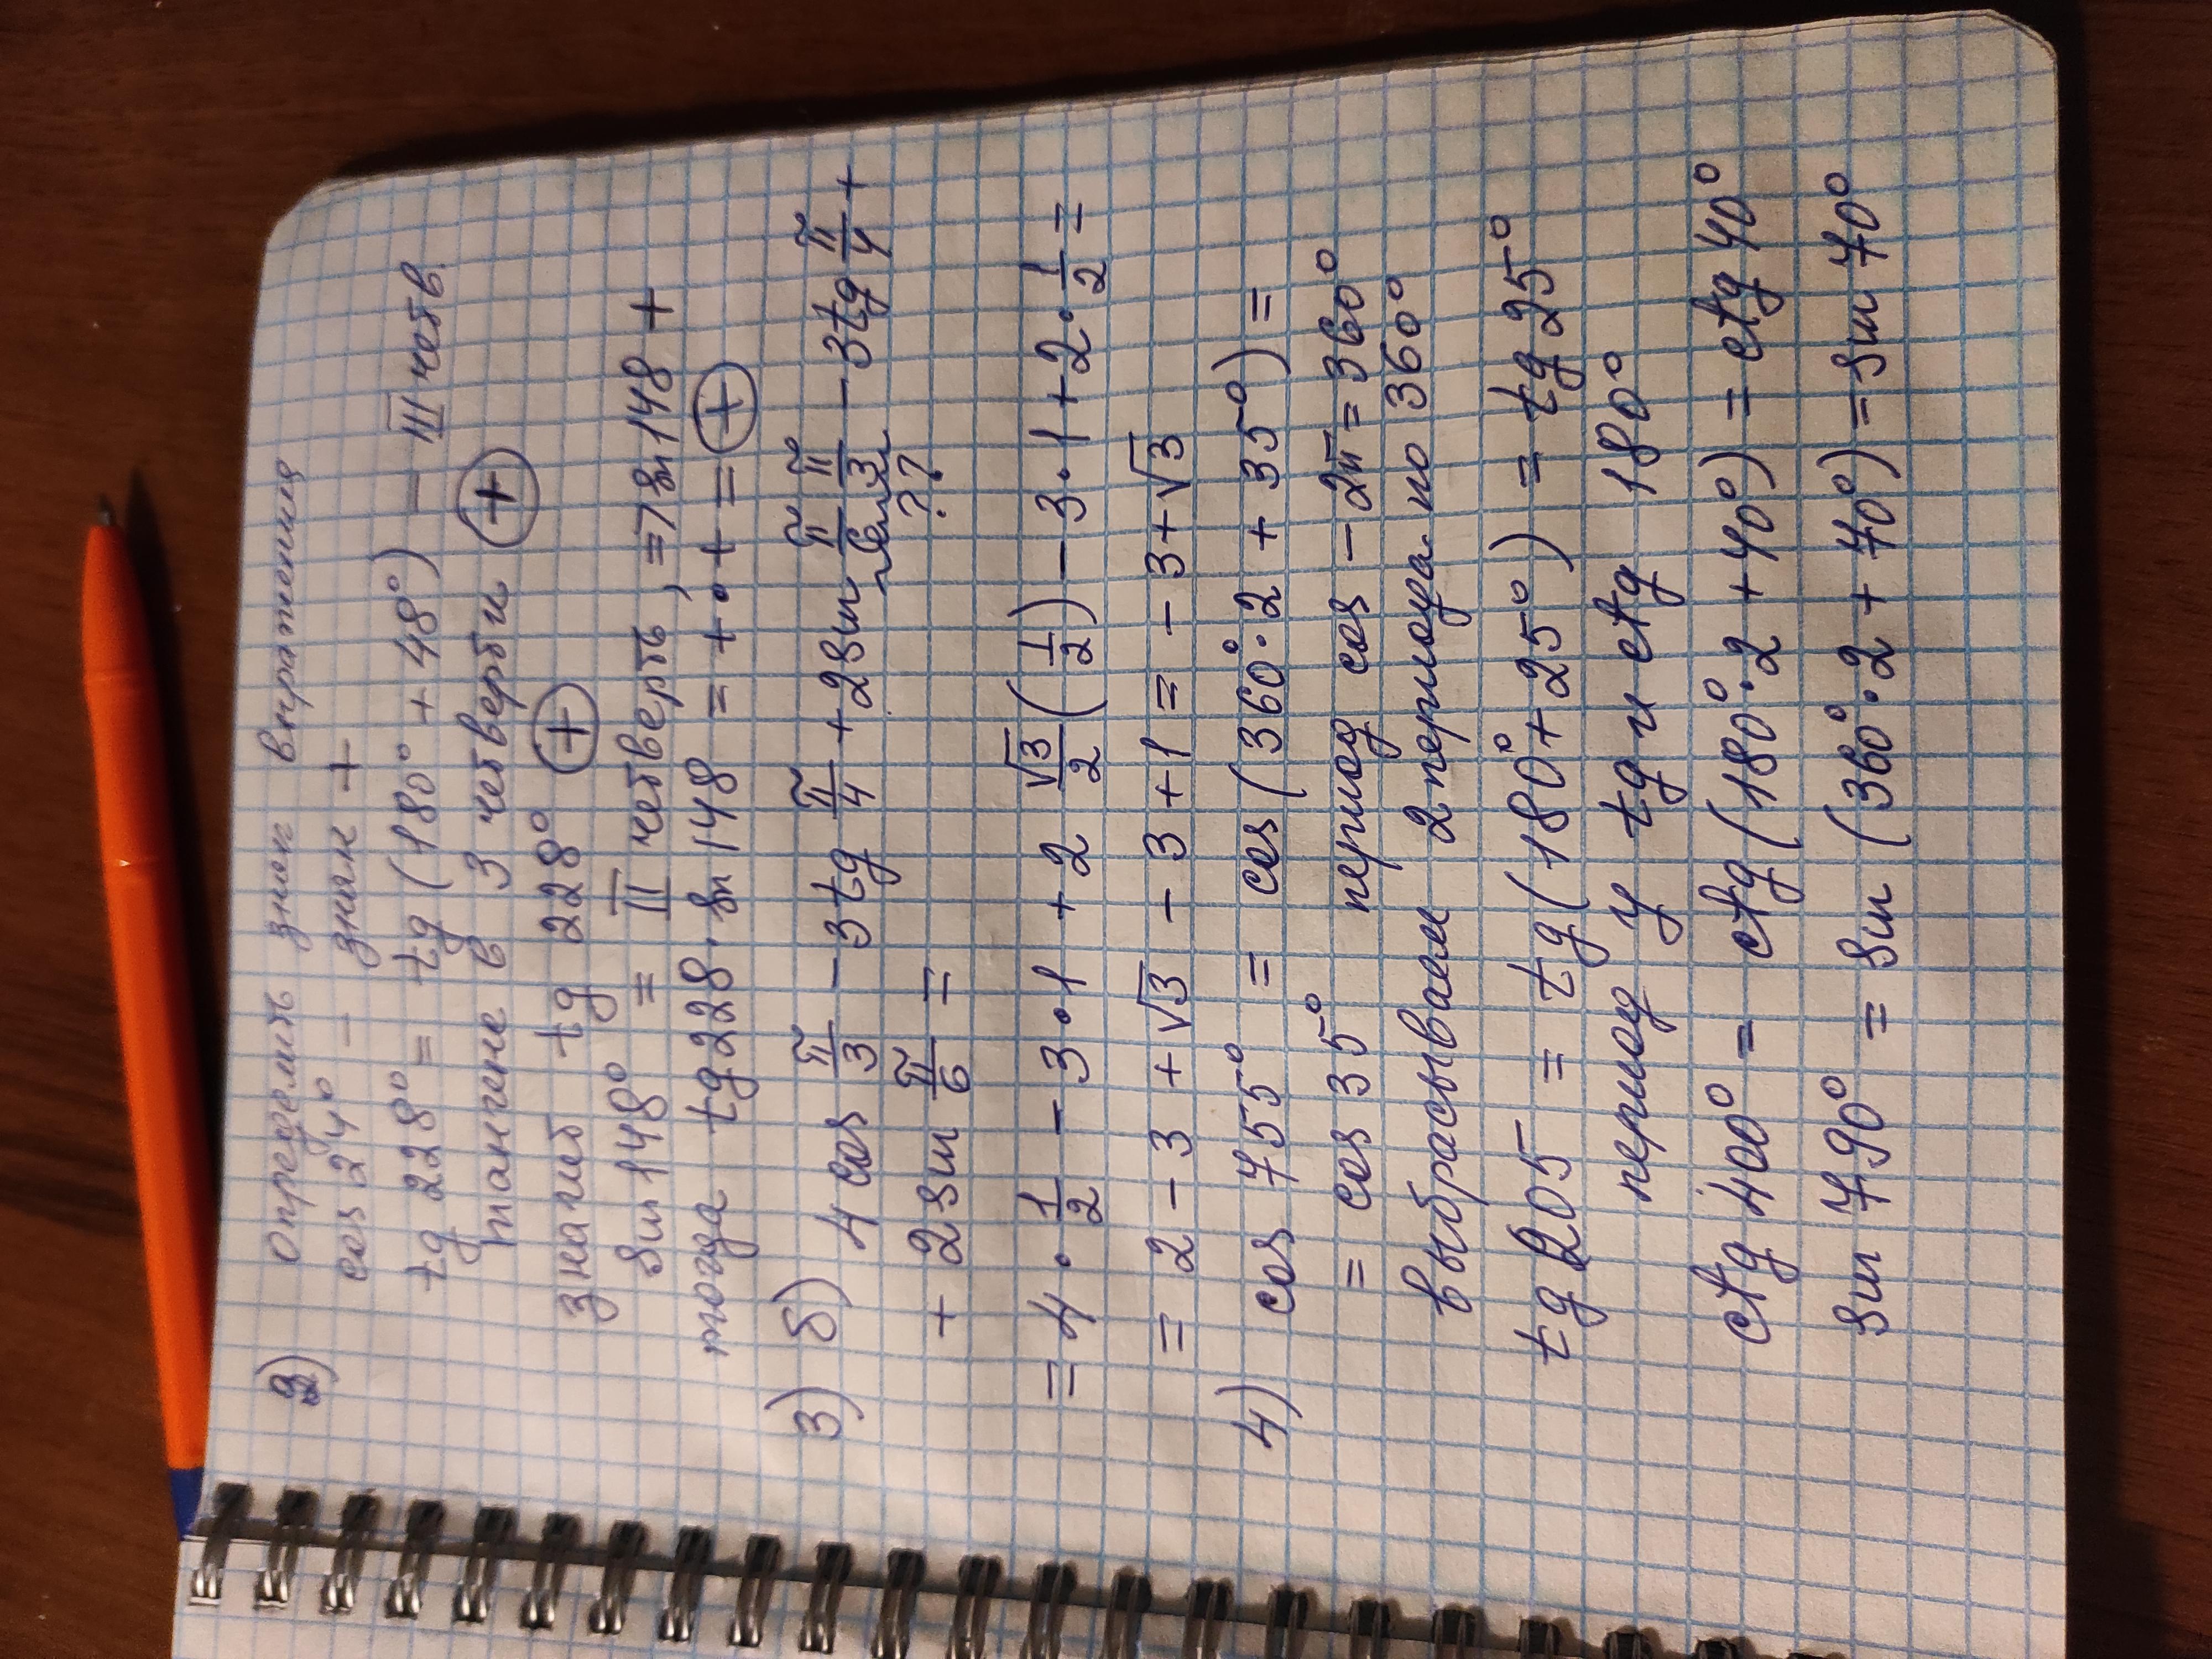 2) Определить знак выражения
cos 24° – знак +
tg 228° = tg (180° + 48°) – III четв.
тангенс в 3 четверти (+)
значит tg 228° (+)
sin 148° = II четверть, => sin 148 +
тогда tg 228 · sin 148 = + · + = (+)
3) б) 4 cos π/3 – 3 tg π/4 + 2 sin π/3 – 3 tg π/4 +
??
+ 2 sin π/6 =
= 4 · 1/2 – 3 · 1 + 2 √3/2 (1/2) – 3 · 1 + 2 · 1/2 =
= 2 – 3 + √3 – 3 + 1 = – 3 + √3
4) cos 755° = cos (360° · 2 + 35°) =
= cos 35° период cos – 2π = 360°
выбрасываем 2 периода по 360°
tg 205 = tg (180° + 25°) = tg 25°
период у tg и ctg 180°
ctg 400° = ctg (180° · 2 + 40°) = ctg 40°
sin 790° = sin (360° · 2 + 70°) = sin 70°